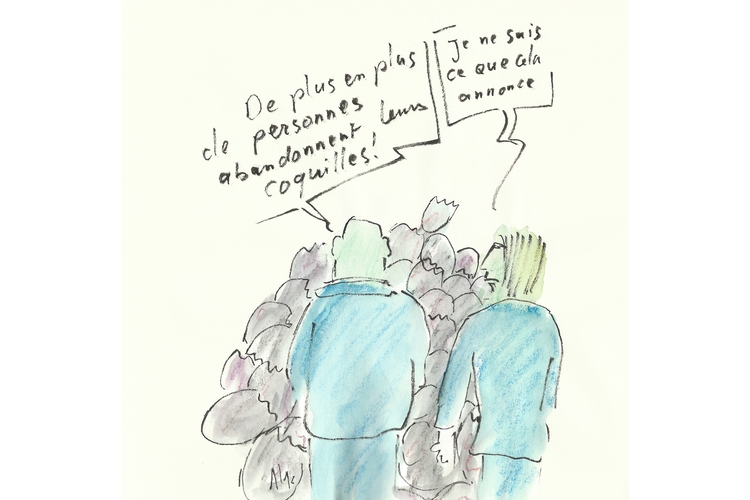 De plus en plus
de personnes
abandonnent leurs
coquilles!
Je ne suis
ce que cela
annonce